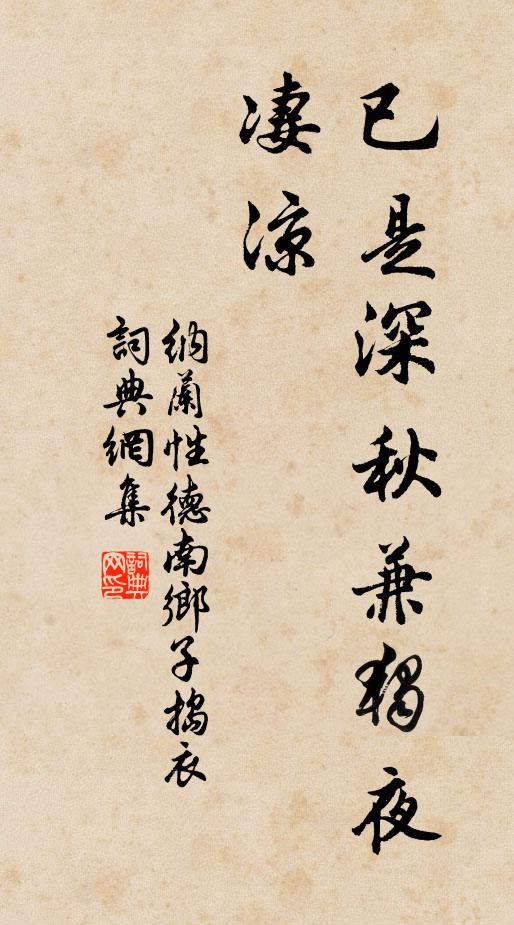 已是深秋兼獨夜
凄涼
納蘭性德南鄉子擣衣
詞典網集
詞典网印